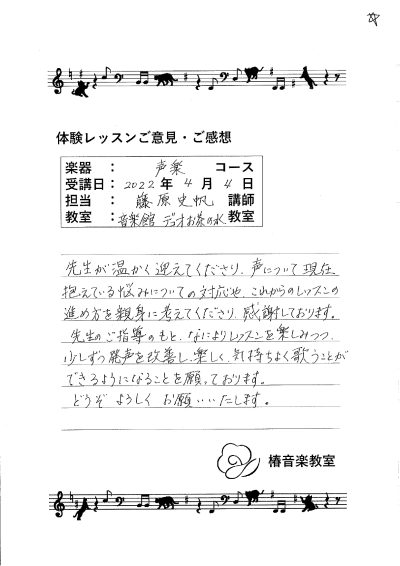 体験レッスンご意見・ご感想
楽器 : 声楽 コース
受講日 : 2022 年 4 月 4 日
担当 : 藤原史帆 講師
教室 : 音楽館 デュオお茶の水 教室
先生が温かく迎えてくださり、声について現在
抱えている悩みについての対応や、これからのレッスンの
進め方を親身に考えてくださり、感謝しております。
先生のご指導のもと、なによりレッスンを楽しみつつ
少しずつ発声を改善し、楽しく、気持ちよく歌うことが
できるようになることを願っております。
どうぞ よろしく お願いいたします。
椿音楽教室